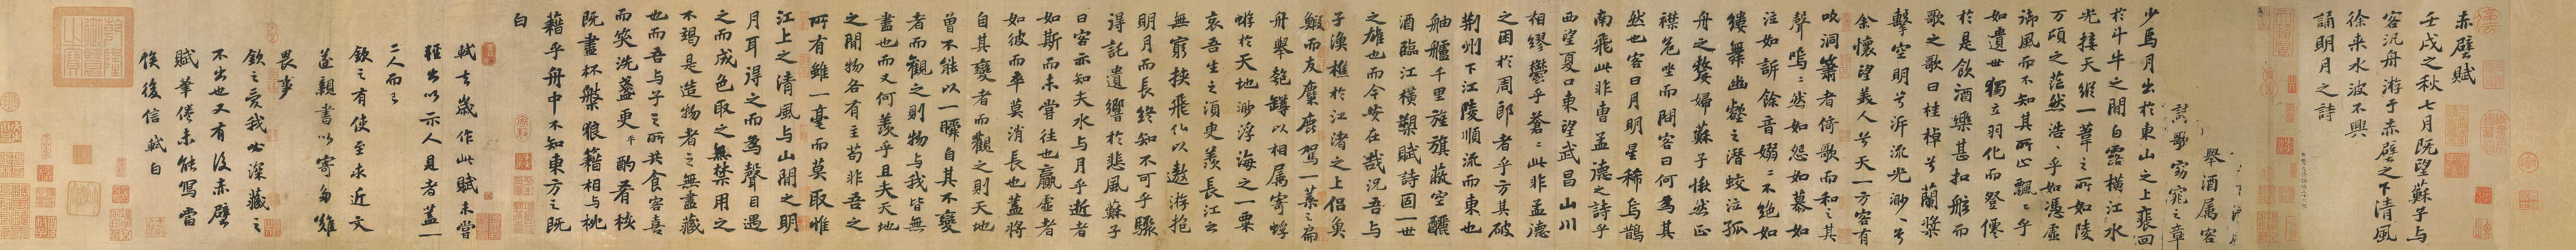 赤壁賦
壬戌之秋七月既望蘇子與
客汎舟游于赤壁之下清風
徐来水波不興
誦明月之詩
舉酒属客
歌窈窕之章
少焉月出於東山之上裵回
於斗牛之間白露橫江水
光接天縱一葦之所如陵
万頃之茫然浩〻乎如馮虛
御風而不知其所止飄〻乎
如遺世獨立羽化而登僊
於是飲酒樂甚扣舷而
歌之歌曰桂棹兮蘭槳
擊空明兮泝流光渺〻兮
余懷望美人兮天一方客有
吹洞簫者倚歌而和之其
聲嗚〻然如怨如慕如
泣如訴餘音嫋〻不絕如
縷舞幽壑之潛蛟泣孤
舟之嫠婦蘇子愀然正
襟危坐而問客曰何為其
然也客曰月明星稀烏鵲
南飛此非曹孟德之詩乎
西望夏口東望武昌山川
相繆鬱乎蒼〻此非孟德
之困於周郎者乎方其破
荊州下江陵順流而東也
舳艫千里旌旗蔽空釃
酒臨江橫槊賦詩固一世
之雄也而今安在哉況吾與
子漁樵於江渚之上侶魚
鰕而友麋鹿駕一葉之扁
舟舉匏罇以相属寄蜉
蝣於天地渺浮海之一粟
哀吾生之須臾羨長江之
無窮挾飛仙以遨游抱
明月而長終知不可乎驟
得託遺響於悲風蘇子
曰客亦知夫水與月乎逝者
如斯而未嘗往也贏虛者
如彼而卒莫消長也蓋將
自其變者而觀之則天地
曾不能以一瞬自其不變
者而觀之則物與我皆無
盡也而又何羨乎且夫天地
之間物各有主苟非吾之
所有雖一毫而莫取惟
江上之清風與山間之明
月耳得之而為聲目遇
之而成色取之無禁用之
不竭是造物者之無盡藏
也而吾與子之所共食客喜
而笑洗盞更酌肴核
平
既盡杯槃狼籍相與枕
藉乎舟中不知東方之既
白
軾去歲作此賦未嘗
輕出以示人見者蓋一
二人而已
欽之有使至求近文
遂親書以寄多難
畏事
欽之愛我必深藏之
不出也又有後赤壁
賦筆倦未能寫當
俟後信軾白